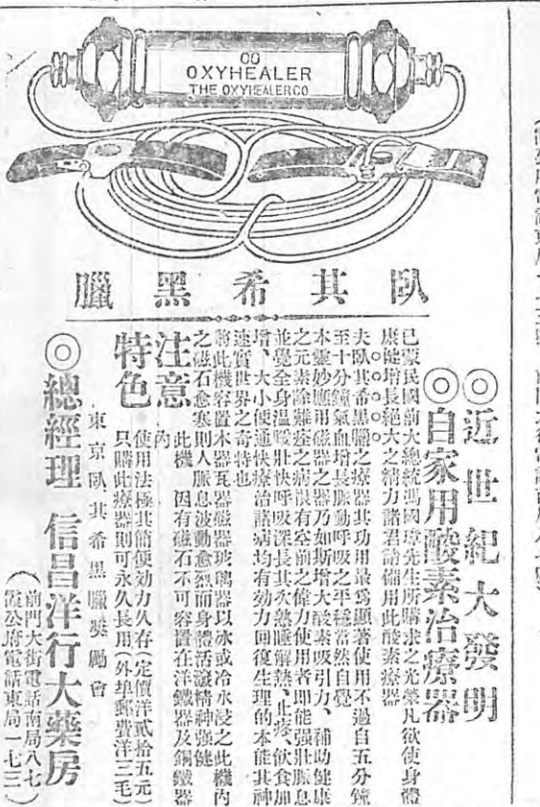 OXYHEALER
THE OXYHEALER CO
臥其希黑臘
◎近世紀大發明
◎自家用酸素治療器
已蒙民國前大總統馮國璋先生所購求之光榮凡欲使身體
康健增長絕大之精力諸君請備用此酸素療器
夫臥其希黑臘之療器其功用最爲顯著使用不過自五分鐘
至十分鐘氣血增長脈動呼吸之平穩當然自覺
本靈妙應用磁器之器乃如斯增大酸素吸引力、補助健康
之元素除難症之病根有空前之偉力使用者即能强壯脈息
並覺全身温暖壯快呼吸深長其久熟睡解熱、止疼、飲食加
增、大小便通快療治諸病均有効力回復生理的本能其神
速實世界之奇特也
將此機容置木器瓦器磁器玻璃器以冰或冷水浸之此機內
之磁石愈寒則人脈息波動愈烈而身體活潑精神强健
注意
此機內因有磁石不可容置在洋鐵器及銅鐵器
特色
使用法極其簡便効力久存(定價洋貳拾五元)
只購此療器則可永久長用(外埠郵費洋三毛)
東京臥其希黑臘奬勵會
◎總經理 信昌洋行大藥房
(前門大街電話南局八七
霞公府電話東局一七三)